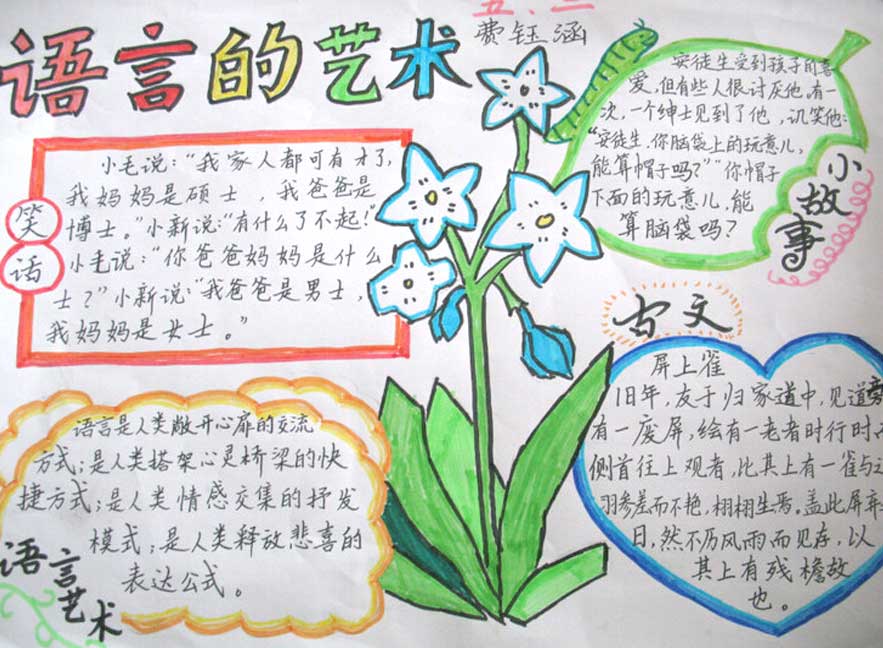 语言的艺术
五、二
费钰涵
笑话
小毛说：“我家人都可有才了,
我妈妈是硕士，我爸爸是
博士。”小新说：“有什么了不起!”
小毛说：“你爸爸妈妈是什么
士?”小新说：“我爸爸是男士，
我妈妈是女士。”
安徒生受到孩子的喜
爱,但有些人很讨厌他,有一
次，一个绅士见到了他，讥笑他:
“安徒生,你脑袋上的玩意儿,
能算帽子吗?”“你帽子
下面的玩意儿,能
算脑袋吗?
小故事
古文
屏上雀
旧年，友于归家道中,见道旁
有一废屏,绘有一老者时行时
侧首往上观者,比其上有一雀与
羽参差而不艳,栩栩生焉。盖此屏弃
日,然不历风雨,而见存,以
其上有残檐故
也。
语言是人类敞开心扉的交流
方式;是人类搭架心灵桥梁的快
捷方式;是人类情感交集的抒发
模式;是人类释放悲喜的
表达公式。
语言艺术